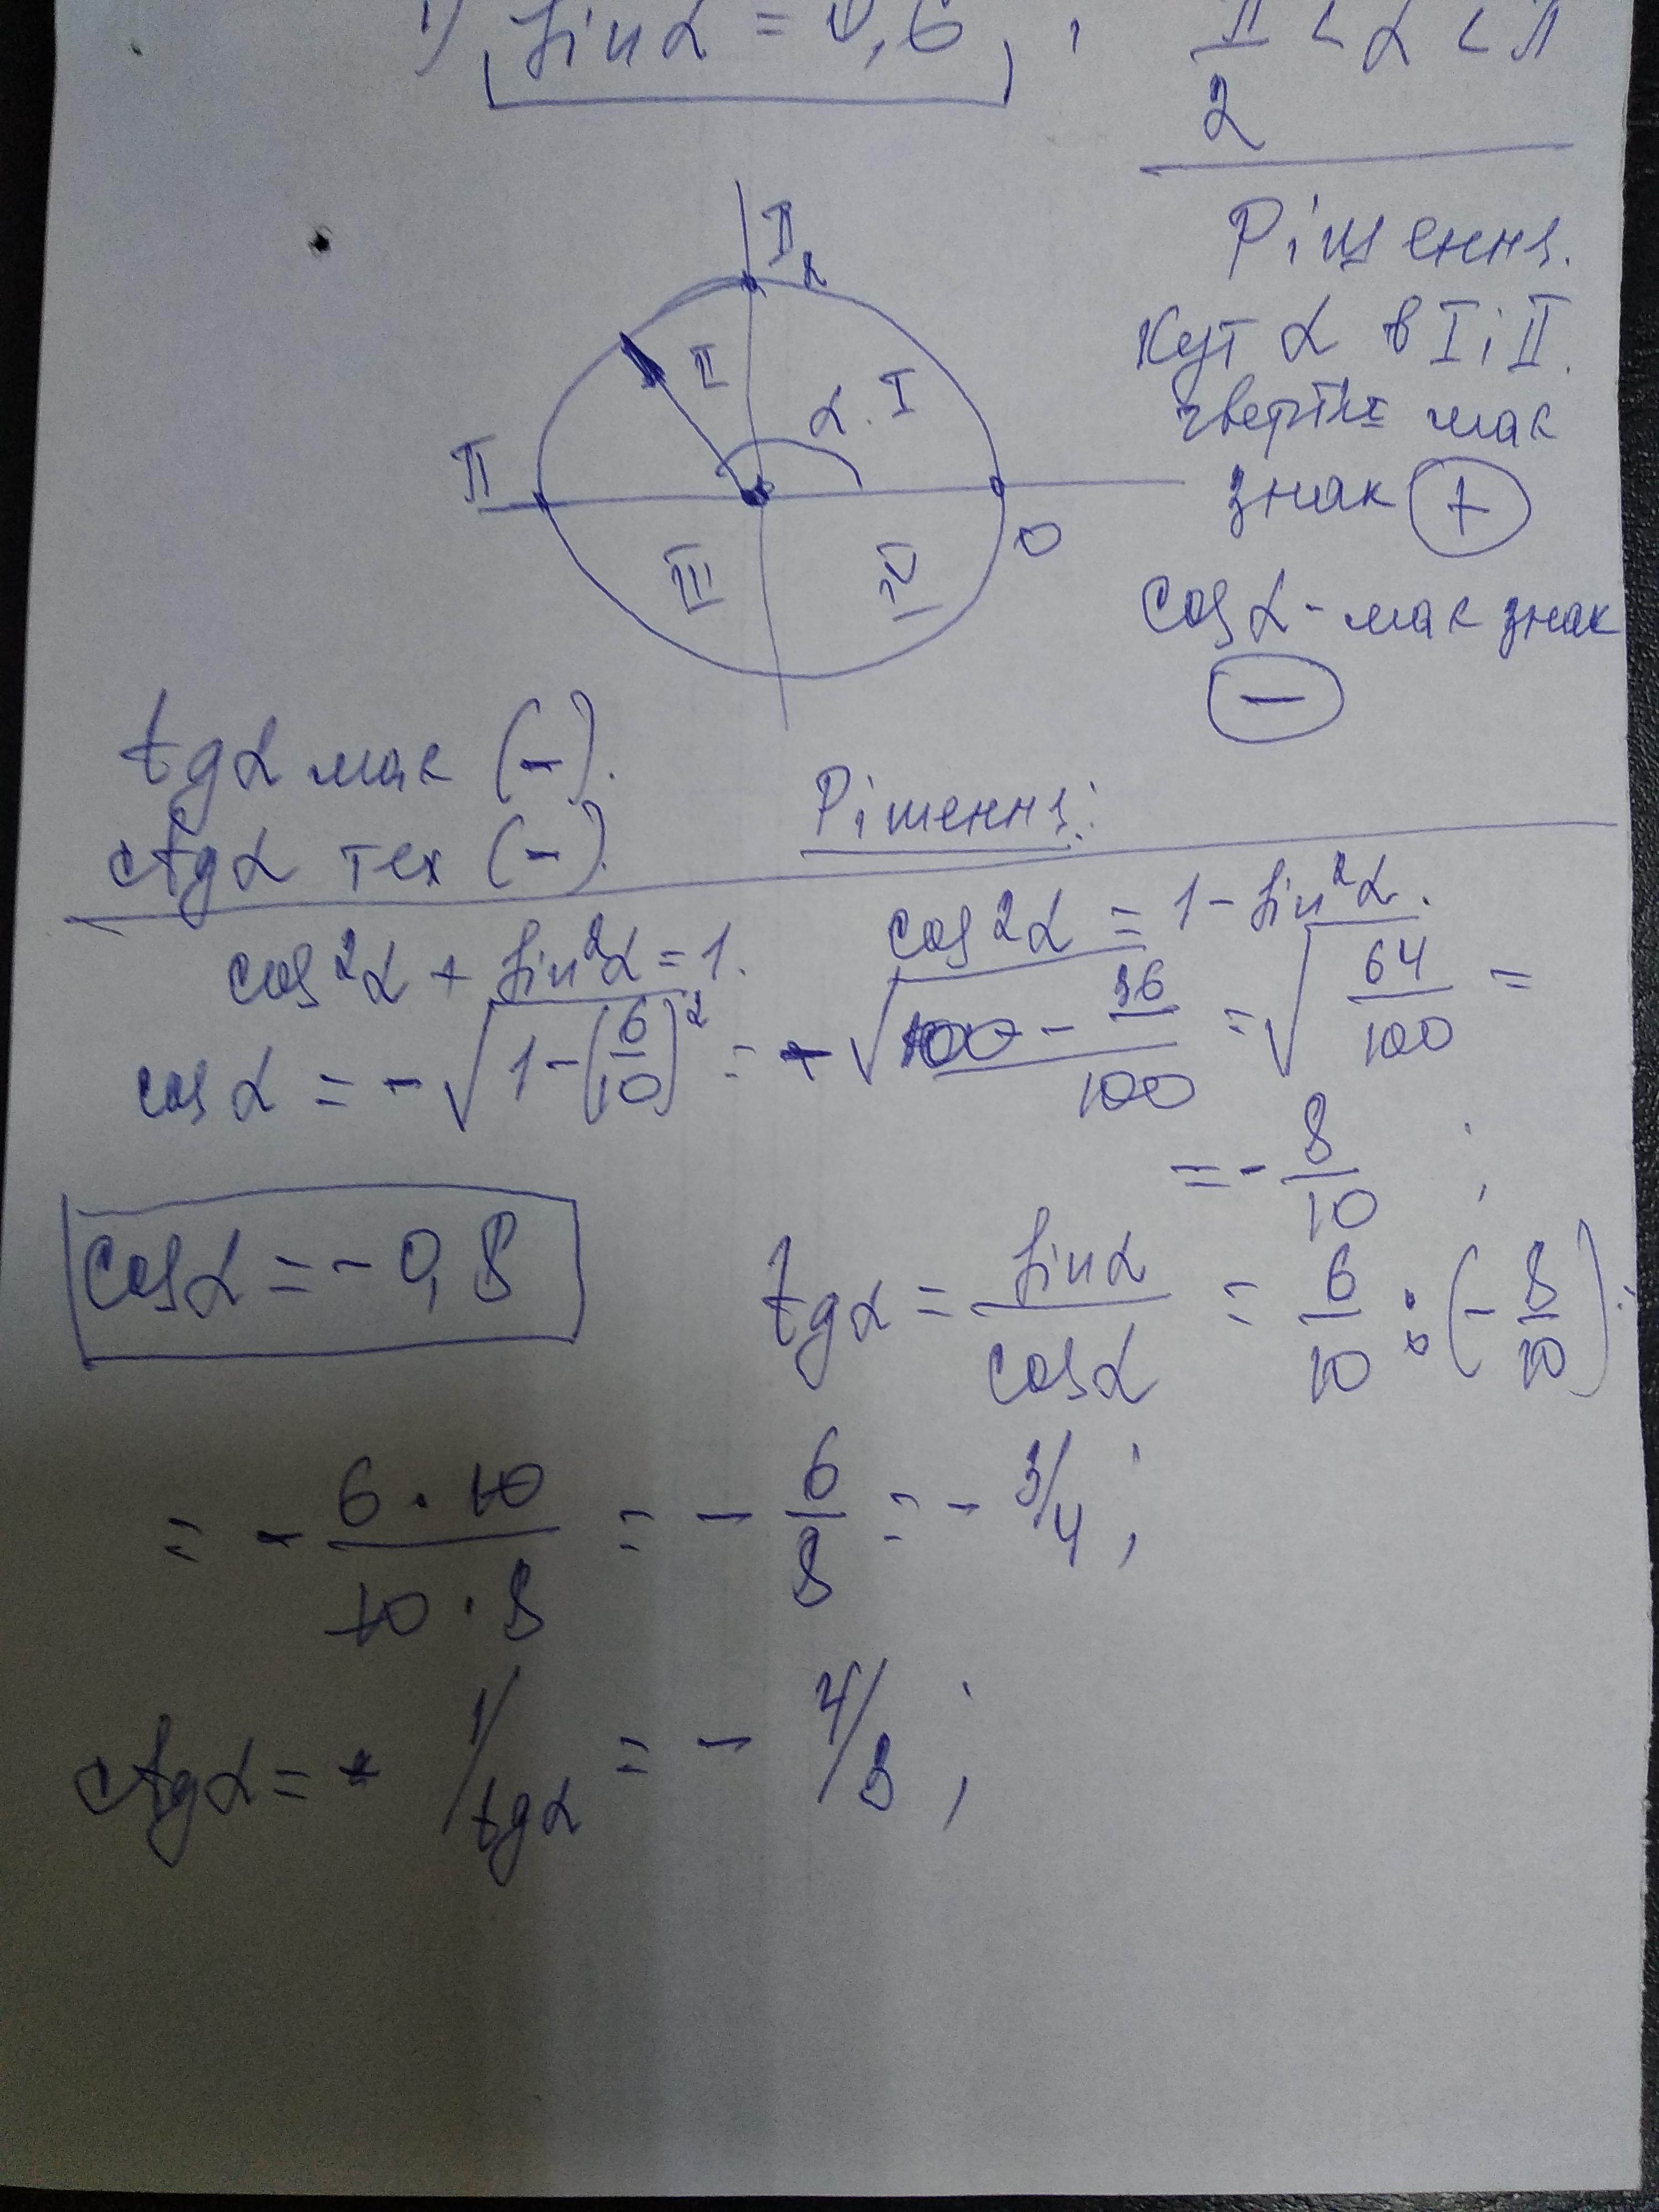 1) sin α = 0,6, ; π/2 < α < π
Рішення.
Кут α в I i II.
чвертях має
знак (+)
cos α - має знак
(-)
π/2
II
α I
π
0
III
IV
tg α має (-).
ctg α теж (-).
Рішення:
cos²α + sin²α = 1.
cos²α = 1 - sin²α.
cos α = -√(1-(6/10)²) = -√((100-36)/100) = √(64/100) =
= - 8/10 ;
cos α = - 0,8
tg α = sin α / cos α = 6/10 : (- 8/10) =
= - (6 · 10)/(10 · 8) = - 6/8 = - 3/4 ;
ctg α = 1/tg α = - 4/3 ;